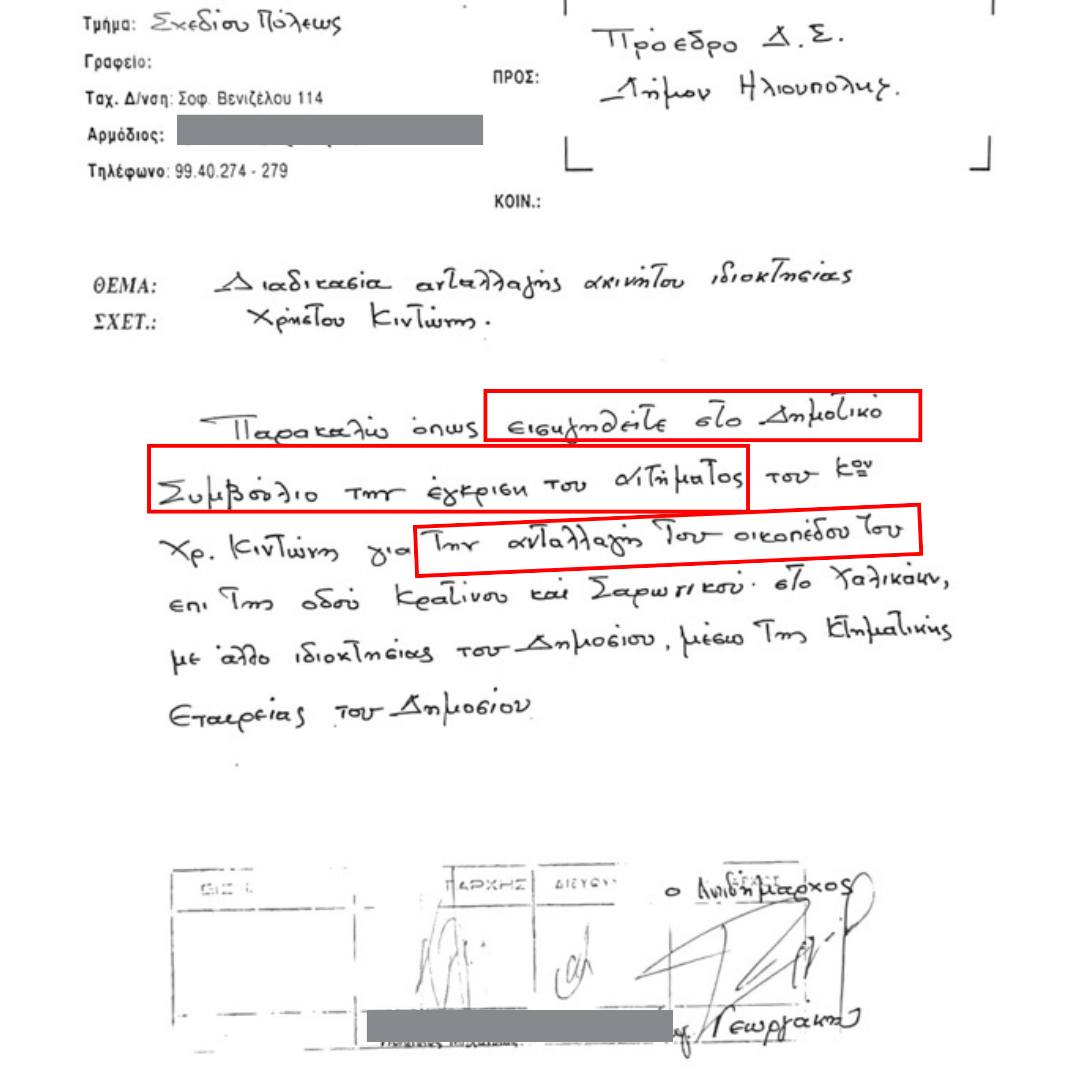 Τμήμα: Σχεδίου Πόλεως
Γραφείο:
Ταχ. Δ/νση: Σοφ. Βενιζέλου 114
Αρμόδιος:
Τηλέφωνο: 99.40.274 - 279
ΠΡΟΣ:
Πρόεδρο Δ.Σ.
Δήμου Ηλιουπολης.
ΚΟΙΝ.:
ΘΕΜΑ: Διαδικασία ανταλλαγής ακινήτου ιδιοκτησίας
ΣΧΕΤ.: Χρήστου Κιντώνη.
Παρακαλώ όπως εισηγηθείτε στο Δημοτικό
Συμβούλιο την έγκριση του αιτήματος του κου
Χρ. Κιντώνη για την ανταλλαγή του οικοπέδου του
επι της οδού Κρατίνου και Σαρωνικού στο Χαλικάκι,
με άλλο ιδιοκτησίας του Δημοσίου, μέσω της Κτηματικής
Εταιρείας του Δημοσίου
ΠΑΡΧΗΣ ΔΙΕΥΘΥΝ
ο Αντιδήμαρχος
Γεωργάκης